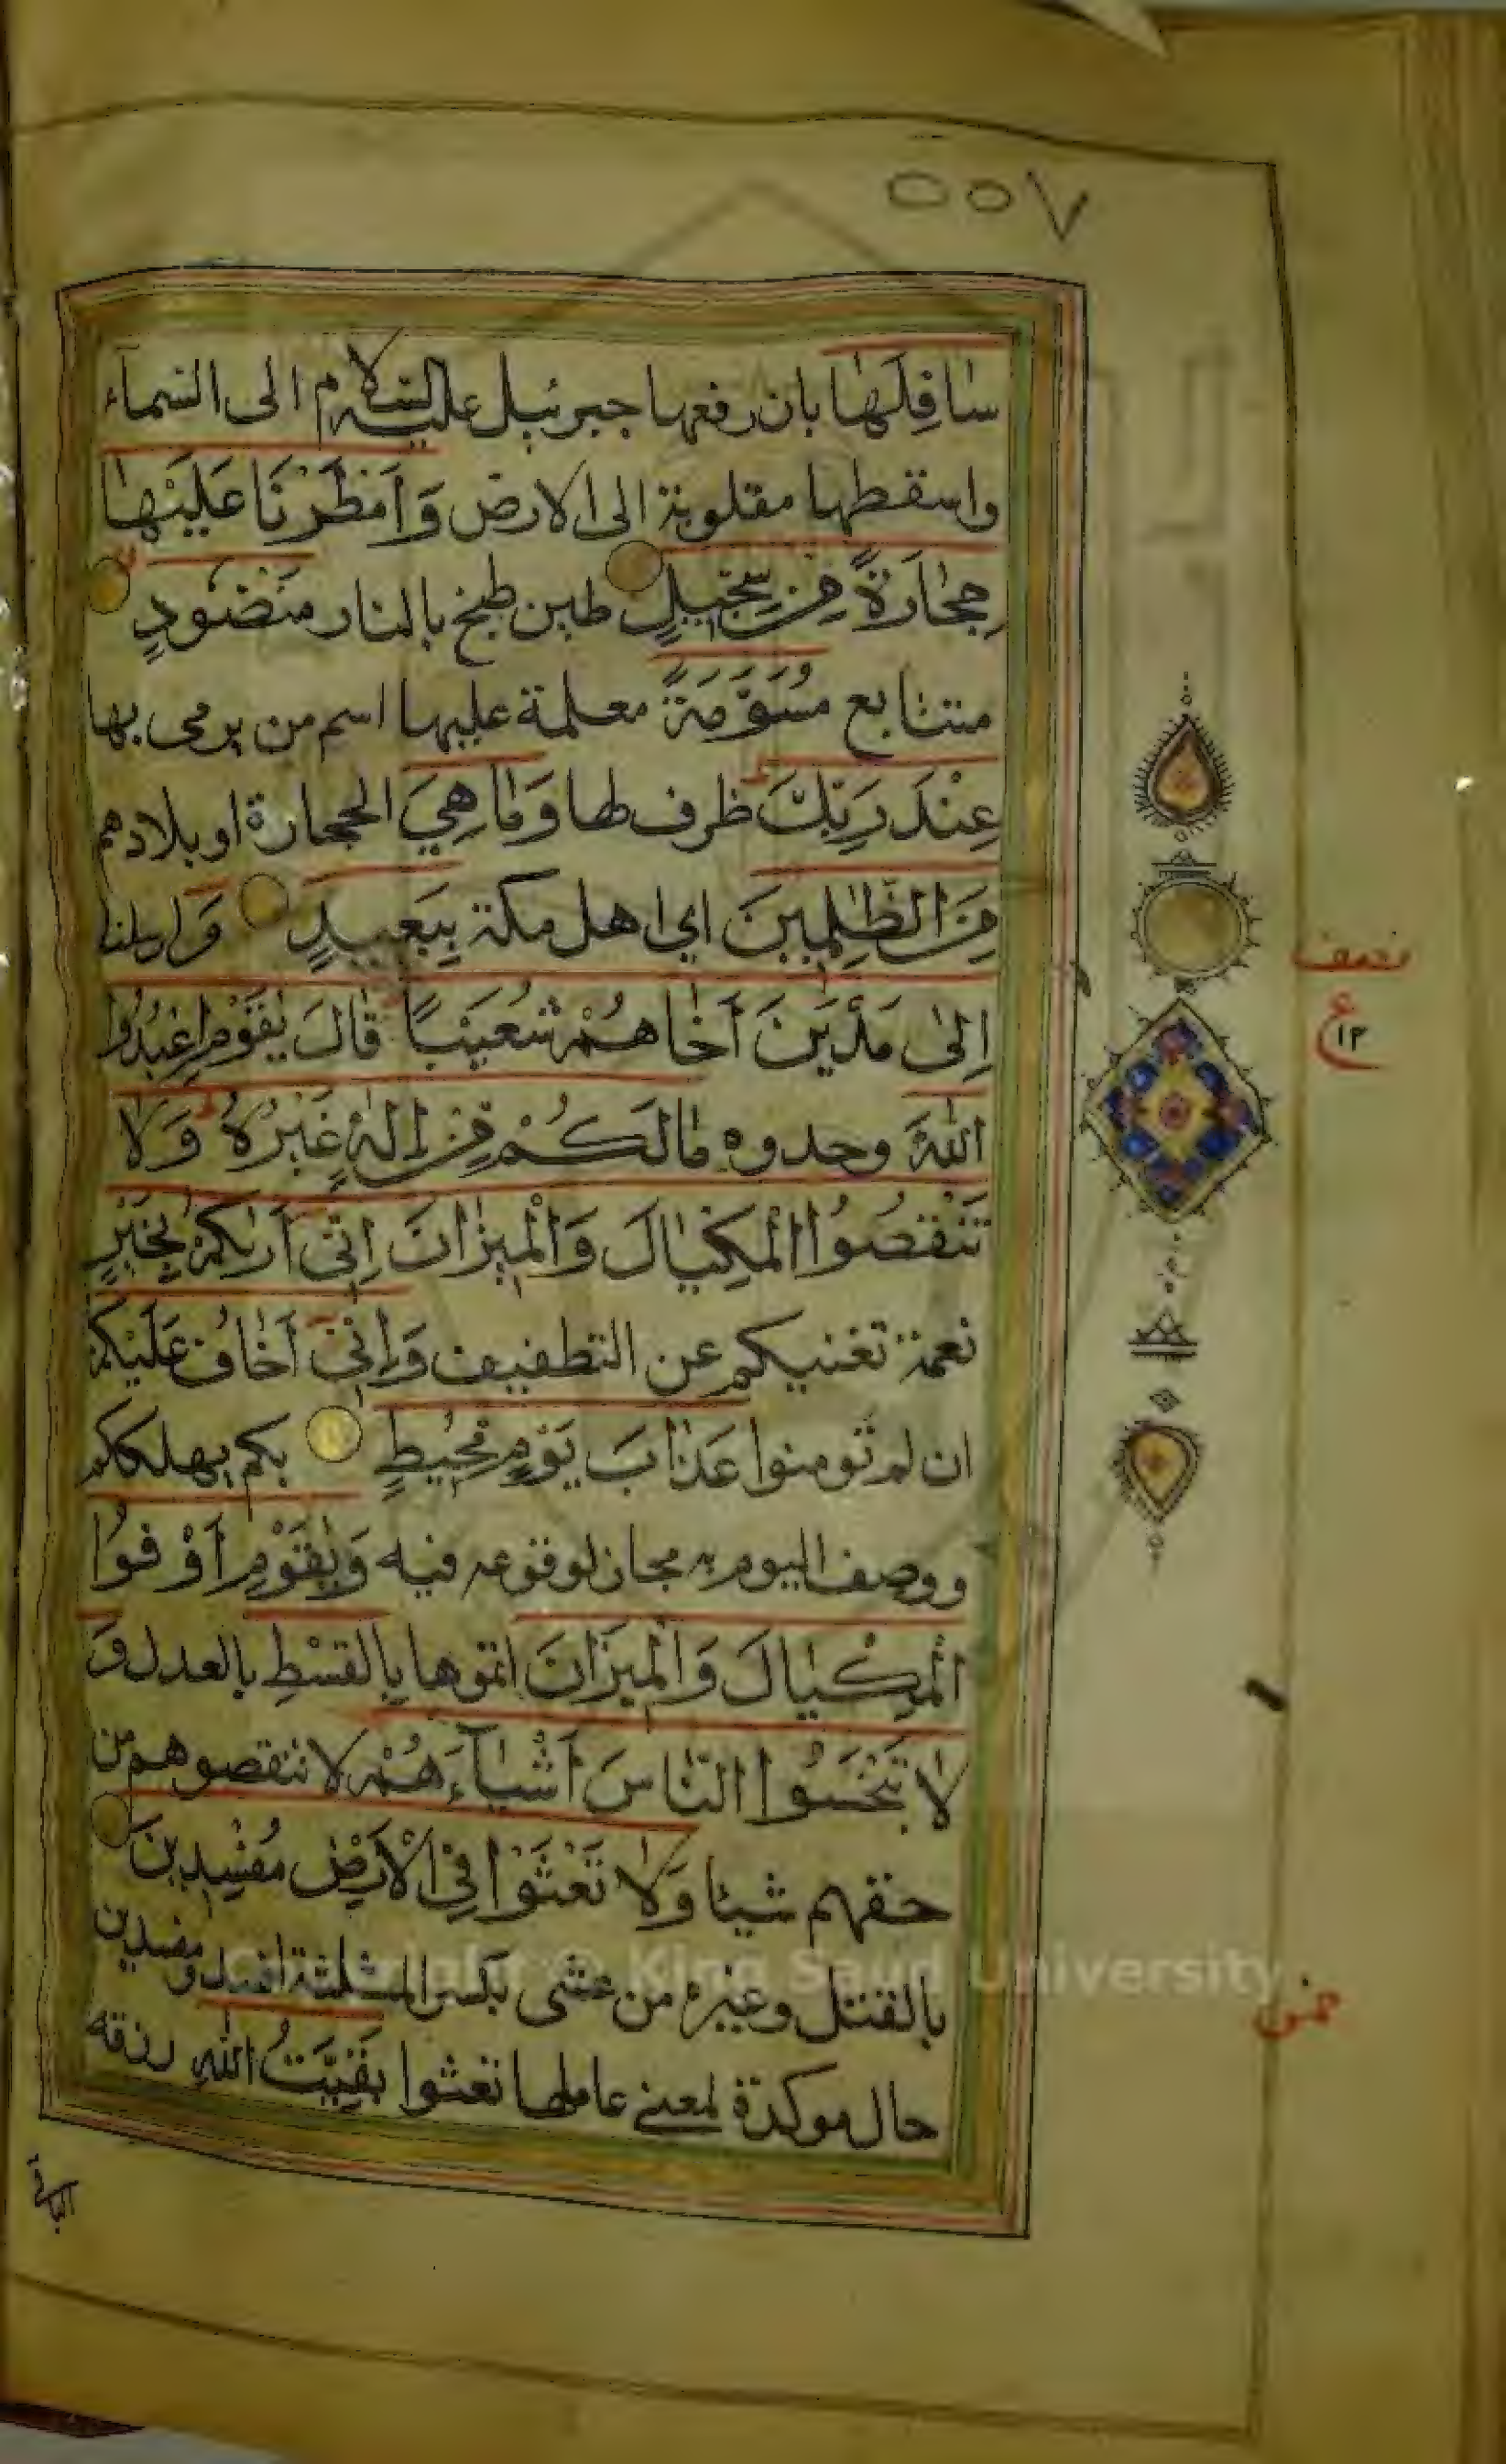 ٥٥٧
سَافِلَهَا بان رفعها جبرئيل عليه السلام الى السماء
واسقطها مقلوبة الى الارض وَاَمْطَرْنَا عَلَيْهَا
حِجَارَةً مِّنْ سِجِّيْلٍ طين طبخ بالنار مَنْضُوْدٍ
متتابع مُسَوَّمَةً معلمة عليها اسم من يرمى بها
عِنْدَ رَبِّكَ ظرف لها وَمَا هِيَ الحجارة او بلادهم
مِنَ الظّٰلِمِيْنَ اي اهل مكة بِبَعِيْدٍ وَارسلنا
اِلٰى مَدْيَنَ اَخَاهُمْ شُعَيْبًا قَالَ يٰقَوْمِ اعْبُدُوا
اللّٰهَ وحدوه مَا لَكُمْ مِّنْ اِلٰهٍ غَيْرُهُ وَلَا
تَنْقُصُوا الْمِكْيَالَ وَالْمِيْزَانَ اِنِّىْ اَرٰىكُمْ بِخَيْرٍ
نعمة تغنيكم عن التطفيف وَاِنِّىْ اَخَافُ عَلَيْكُمْ
ان لم تومنوا عَذَابَ يَوْمٍ مُّحِيْطٍ بكم يهلككم
ووصف اليوم به مجاز لوقوعه فيه وَيٰقَوْمِ اَوْفُوا
الْمِكْيَالَ وَالْمِيْزَانَ اتموها بِالْقِسْطِ بالعدل وَ
لَا تَبْخَسُوا النَّاسَ اَشْيَآءَهُمْ لا تنقصوهم من
حقهم شيئا وَلَا تَعْثَوْا فِى الْاَرْضِ مُفْسِدِيْنَ
بالقتل وغيره من عثى بكسر المثلثة افسد ومفسدين
حال موكدة لمعنى عاملها تعثوا بَقِيَّتُ اللّٰهِ رزقه
الباقي
نصف
ع
١٢
ثمن
Copyright © King Saud University